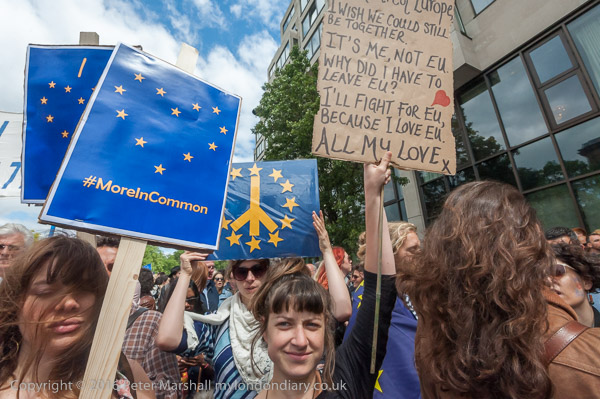 Europe,
I WISH WE COULD STILL
BE TOGETHER.
IT'S ME, NOT EU.
WHY DID I HAVE TO
LEAVE EU?
I'LL FIGHT FOR EU,
BECAUSE I LOVE EU,
ALL MY LOVE x
#MoreInCommon
Copyright © 2016 Peter Marshall mylondondiary.co.uk